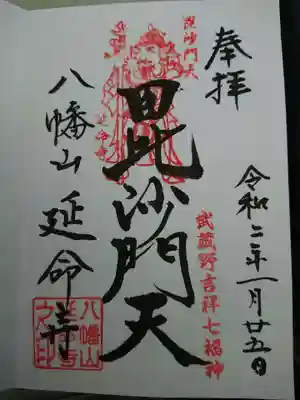 奉拝
令和二年一月廿五日
武蔵野吉祥七福神
毘沙門天
毘沙門天
八幡山 延命寺
八幡山
延命寺
之印